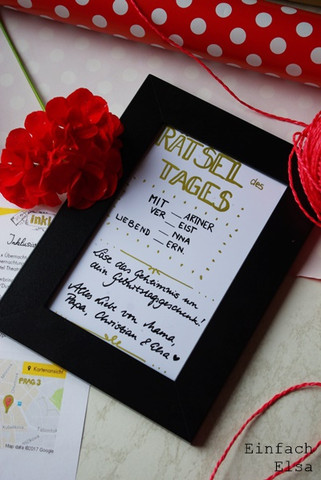 RÄTSEL des
TAGES
MIT __ARTNER
VER __EIST
__NNA
LIEBEND __ERN.
Löse das Geheimnis um
dein Geburtstagsgeschenk!
Alles Liebe von Mama,
Papa, Christian & Elsa ♥
Inkl
Inklusiv
Kartenansicht
PRAG 3
Map data ©2017 Google
Einfach
Elsa